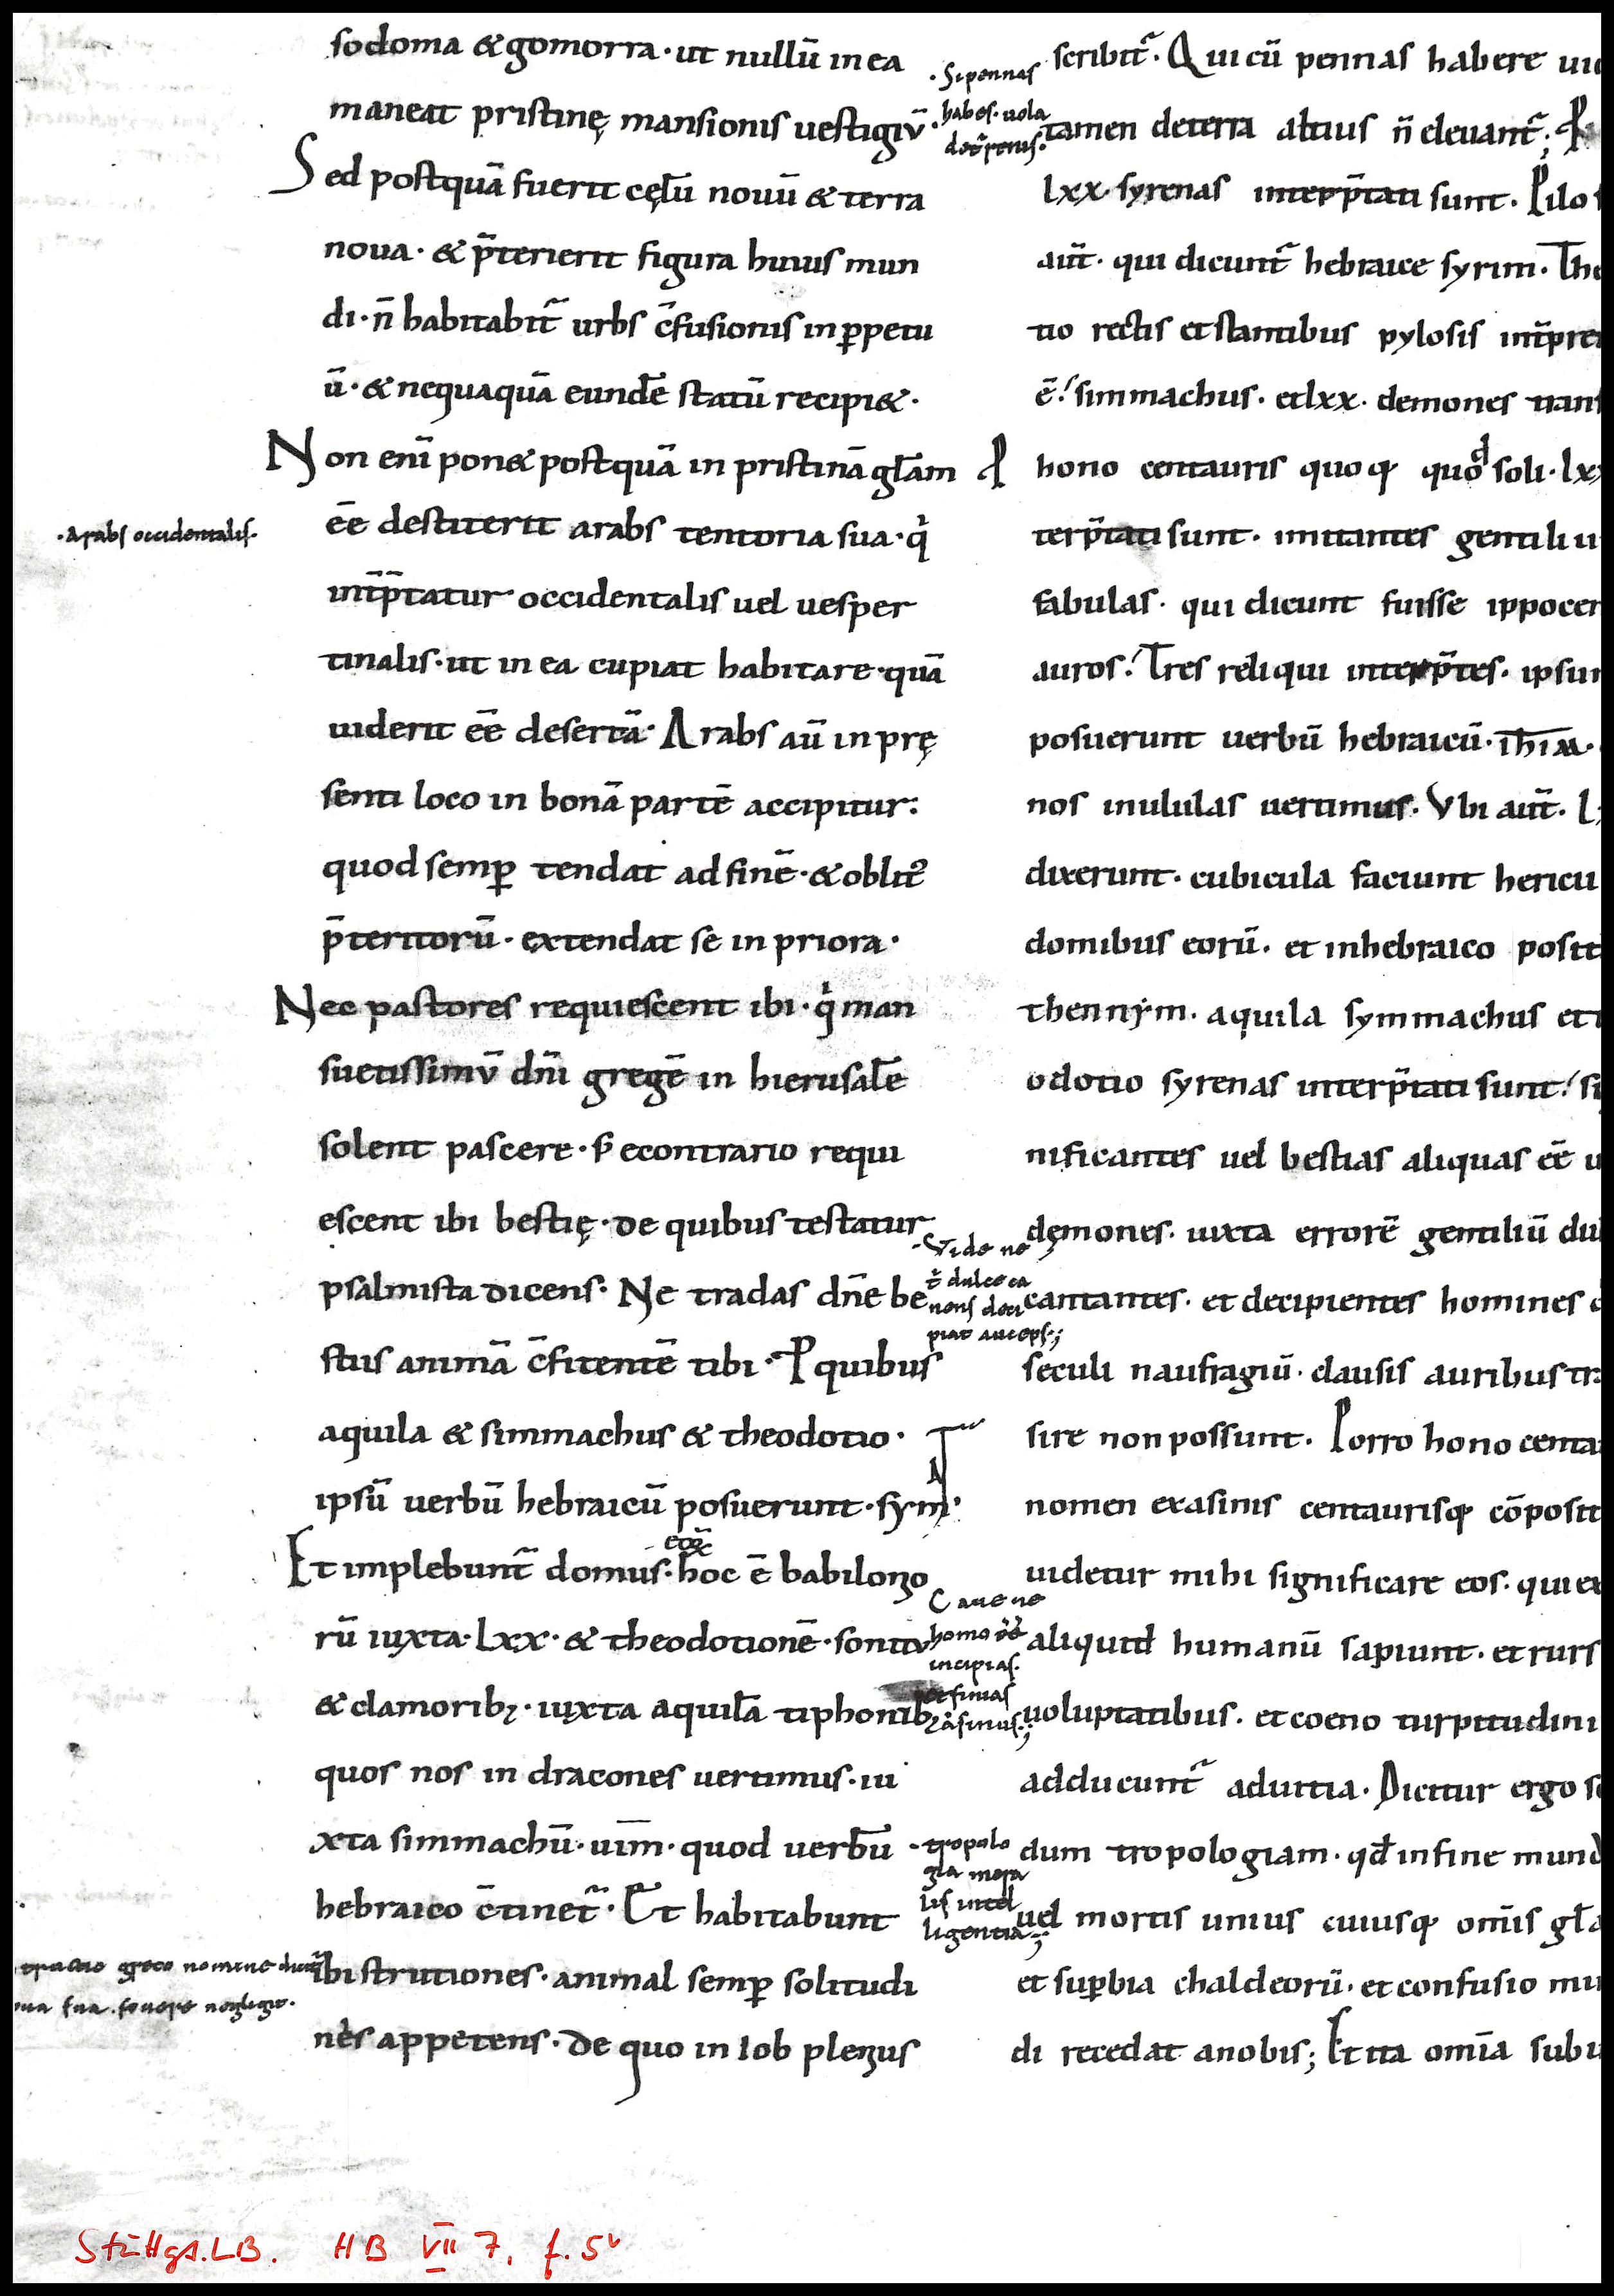 sodoma & gomorra · ut nullū in ea
maneat pristinę mansionis uestigiū ·
Sed postquā fuerit cęlū nouū & terra
noua · & p̄terierit figura huius mun
di · n̄ habitabit̄ urbs c̄fusionis in ꝑpetu
ū · & nequaquā eundē statū recipi& ·
Non eni̅ pon& postquā in pristinā gl̄am
ēe destiterit arabs tentoria sua · qͥ
int̄p̄tatur occidentalis uel uesper
tinalis · ut in ea cupiat habitare · quā
uiderit ēe desertā · Arabs aū in prę
senti loco in bonā partē accipitur :
quod semꝑ tendat ad finē · & oblit᷒
p̄teritorū · extendat se in priora ·
Nec pastores requiescent ibi · qͥ man
suetissimū dn̄i gregē in hierusalē
solent pascere · s̄ econtrario requi
escent ibi bestię · de quibus testatur
psalmista dicens · Ne tradas dn̄e be
stiis animā c̄fitentē tibi · P quibus
aquila & simmachus & theodotio ·
ipsū uerbū hebraicū posuerunt · sym ·
Et implebunt̄ domus · hoc ē babilonio
rū iuxta · lxx · & theodotionē · sonitu
& clamoribꝫ · iuxta aquilā tiphonibꝫ
quos nos in dracones uertimus · iu
xta simmachū · uim̄ · quod uerbū
hebraico c̄tinet̄ · Et habitabunt
ibi strutiones · animal semꝑ solitudi
nes appetens · de quo in Iob plenius
· Arabs occidentalis ·
greco nomine
sua · fouere neglegit ·
· Si pennas
habes · uola
· Vide ne
t̄ dulce ca
nens deci
piat auceps ·;
Caue ne
homo
incipias ·
& finias
asinus ·;
· tropolo
gia mora
lis intel
ligentia ·;
scribit̄ · Qui cū pennas habere ui
tamen deterra altius n̄ eleuant̄ ;
lxx · syrenas interp̄tati sunt · Pilos
aūt · qui dicunt̄ hebraice syrim · The
tio rectis et stantibus pylosis int̄pre
ē : simmachus · et lxx · demones trans
hono centauris quoqꝫ quod soli · lx
terp̄tati sunt · imitantes gentiliu
fabulas · qui dicunt fuisse ippocen
auros : Tres reliqui interp̄tes · ipsum
posuerunt uerbū hebraicū · ihim ·
nos in ululas uertimus · Vbi aūt · l
dixerunt · cubicula faciunt hericii
domibus eorū · et in hebraico posit
thennym · aquila symmachus et
odotio syrenas interp̄tati sunt : si
nificantes uel bestias aliquas ēe u
demones · iuxta errorē gentiliū dul
cantantes · et decipientes homines
seculi naufragiū · clausis auribus tr
sire non possunt · Porro hono centa
nomen ex asinis centaurisqꝫ cōposit
uidetur mihi significare eos · qui ex
aliquid humanū sapiunt · et rurs
uoluptatibus · et coeno turpitudini
adducunt̄ aduitia · Dicitur ergo se
dum tropologiam · qđ in fine mund
uel mortis unius cuiusqꝫ om̄is gl̄a
et suꝑbia chaldeorū · et confusio mu
di recedat anobis ; Et ita om̄ia sub u
Stuttgt. LB. HB VII 7, f. 5v